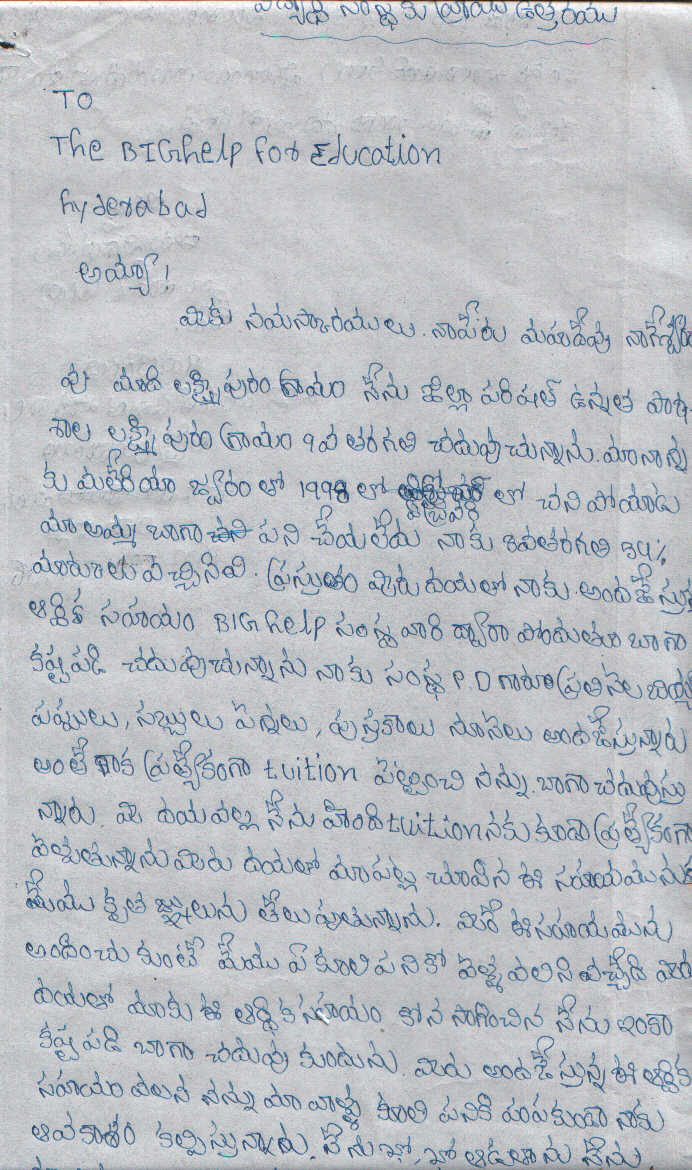 సంస్థకు వ్రాయు ఉత్తరము
TO
The BIGhelp for Education
hyderabad
అయ్యా!
మీకు నమస్కారములు. నాపేరు మహాదేవు
మాది లక్ష్మిపురం గ్రామం నేను జిల్లా పరిషత్ ఉన్నత పాఠ
శాల లక్ష్మిపురం గ్రామం 9వ తరగతి చదువుచున్నాను. మా నాన్న
కు మలేరియా జ్వరం తో 1998 లో లో చని పోయాడు
మా అమ్మ బాగా పని చేయలేదు నాకు 8వతరగతి 54%
మార్కులు వచ్చినవి. ప్రస్తుతం మీరు దయతో నాకు అందజేస్తు
ఆర్థిక సహాయం BIG help సంస్థ వారి ద్వారా పొందుతూ బాగా
కష్టపడి చదువుచున్నాను నాకు సంస్థ P.D గారు ప్రతినెల
పప్పులు, సబ్బులు పెన్నులు, పుస్తకాలు నూనెలు అందజేస్తున్నారు
అంతే కాక ప్రత్యేకంగా tuition పెట్టించి నన్ను బాగా చదువిస్తు
న్నారు. మీ దయవల్ల నేను హింది tuition నకు కుడా ప్రత్యేకంగా
వెళుతున్నాను మీరు దయతో మాపట్ల చూపిన ఈ సహాయమునకు
మేము కృతజ్ఞులును తెలుపుతున్నాను. మీరే ఈ సహాయమును
అందించకుంటే మేము ఏ కూలిపనికో వెళ్ళవలసి వచ్చేది మీరు
దయతో మాకు ఈ ఆర్థిక సహాయం కోన సాగించిన నేను ఇంకా
కష్టపడి బాగా చదువు కుందును. మీరు అందజేస్తున్న ఈ ఆర్థిక
సహాయం వలన నన్ను మా వాళ్ళు కూలి పనికి పంపకుండా నాకు
అవకాశం కల్పిస్తున్నారు. నేను ఖో, ఖో ఆడతాను నేను